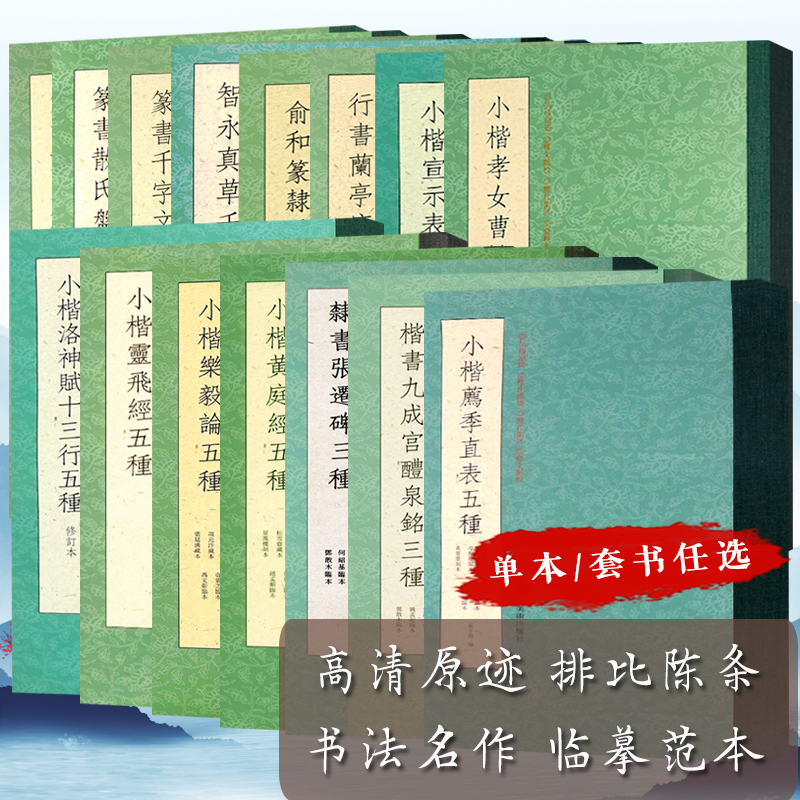 篆書散氏盤
篆書千字文
智永真草千
俞和篆隸
行書蘭亭
小楷宣示表
小楷孝女曹
小楷洛神賦十三行五種
修訂本
小楷靈飛經五種
小楷樂毅論五種
小楷黄庭經五種
隸書張遷碑三種
何紹基臨本
鄧散木臨本
楷書九成宫醴泉銘三種
姚孟起臨本
鄧散木臨本
小楷薦季直表五種
单本/套书任选
高清原迹 排比陈条
书法名作 临摹范本